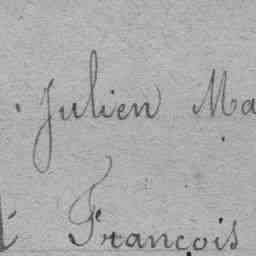 Julien Ma
François